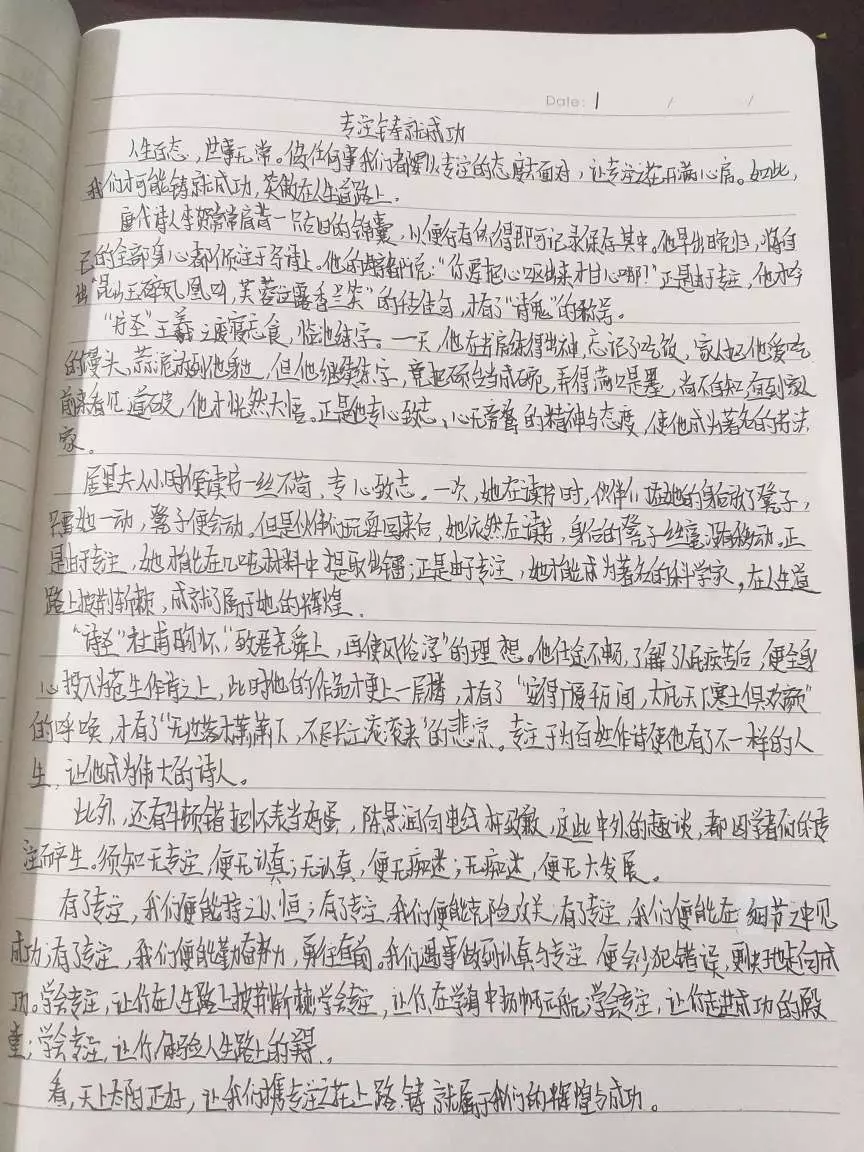 Date: 1 / /
专注铸就成功
人生百态，世事无常。做任何事我们都要以专注的态度去面对，让专注之花开满心房。如此，
我们才可能铸就成功，笑傲在人生道路上。
唐代诗人李贺常常肩背一只古旧的锦囊，以便行有所得即可记录保存在其中。他早出晚归，将自
己的全部身心都倾注于写诗上。他的母亲都说："你要把心呕出来才甘心哪！"正是由于专注，他才吟
出"昆山玉碎凤凰叫，芙蓉泣露香兰笑"的佳句，才有了"诗鬼"的称号。
"书圣"王羲之废寝忘食，临池练字。一天，他在书房练得出神，忘记了吃饭，家人把他爱吃
的馒头、蒜泥放到他身边，但他继续练字，竟把砚台当成碗，弄得满口是墨，尚不自知，直到家人
前来看见，道破，他才恍然大悟。正是他专心致志、心无旁骛的精神与态度，使他成为著名的书法
家。
居里夫人小时候读书一丝不苟、专心致志。一次，她在读书时，伙伴们在她的身后放了凳子，
只要她一动，凳子便会动。但是伙伴们玩耍回来后，她依然在读书，身后的凳子丝毫没有移动。正
是由于专注，她才能在几吨材料中提取出镭；正是由于专注，她才能成为著名的科学家，在人生道
路上披荆斩棘，成就了属于她的辉煌。
"诗圣"杜甫胸怀"致君尧舜上，再使风俗淳"的理想。他仕途不畅，了解了人民疾苦后，便全身
心投入为苍生作诗之上，此时他的作品才更上一层楼，才有了"安得广厦千万间，大庇天下寒士俱欢颜"
的呼唤，才有了"无边落木萧萧下，不尽长江滚滚来"的悲凉。专注于为百姓作诗使他有了不一样的人
生，让他成为伟大的诗人。
此外，还有牛顿错把怀表当鸡蛋，陈景润向电线杆致歉，这些中外的趣谈，都因学者们的专
注而产生。须知无专注，便无认真；无认真，便无痴迷；无痴迷，便无大发展。
有了专注，我们便能持之以恒；有了专注，我们便能克险攻关；有了专注，我们便能在细节之中见
成功；有了专注，我们便能勤奋努力，勇往直前。我们遇事做到认真与专注，便会少犯错误，更快地走向成
功。学会专注，让你在人生路上披荆斩棘；学会专注，让你在学海中扬帆远航；学会专注，让你走进成功的殿
堂；学会专注，让你体验人生路上的
看，天上太阳正好，让我们携专注之花上路，铸就属于我们的辉煌与成功。